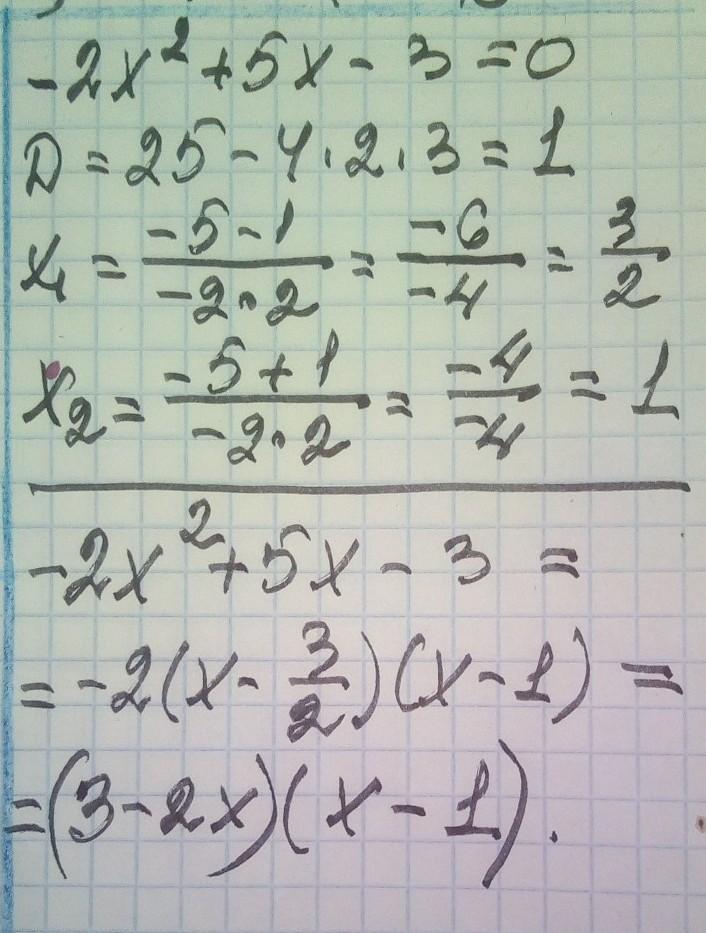 -2x² + 5x - 3 = 0
D = 25 - 4 · 2 · 3 = 1
x₁ = \frac{-5-1}{-2·2} = \frac{-6}{-4} = \frac{3}{2}
x₂ = \frac{-5+1}{-2·2} = \frac{-4}{-4} = 1
-2x² + 5x - 3 =
= -2(x - \frac{3}{2})(x - 1) =
= (3 - 2x)(x - 1).